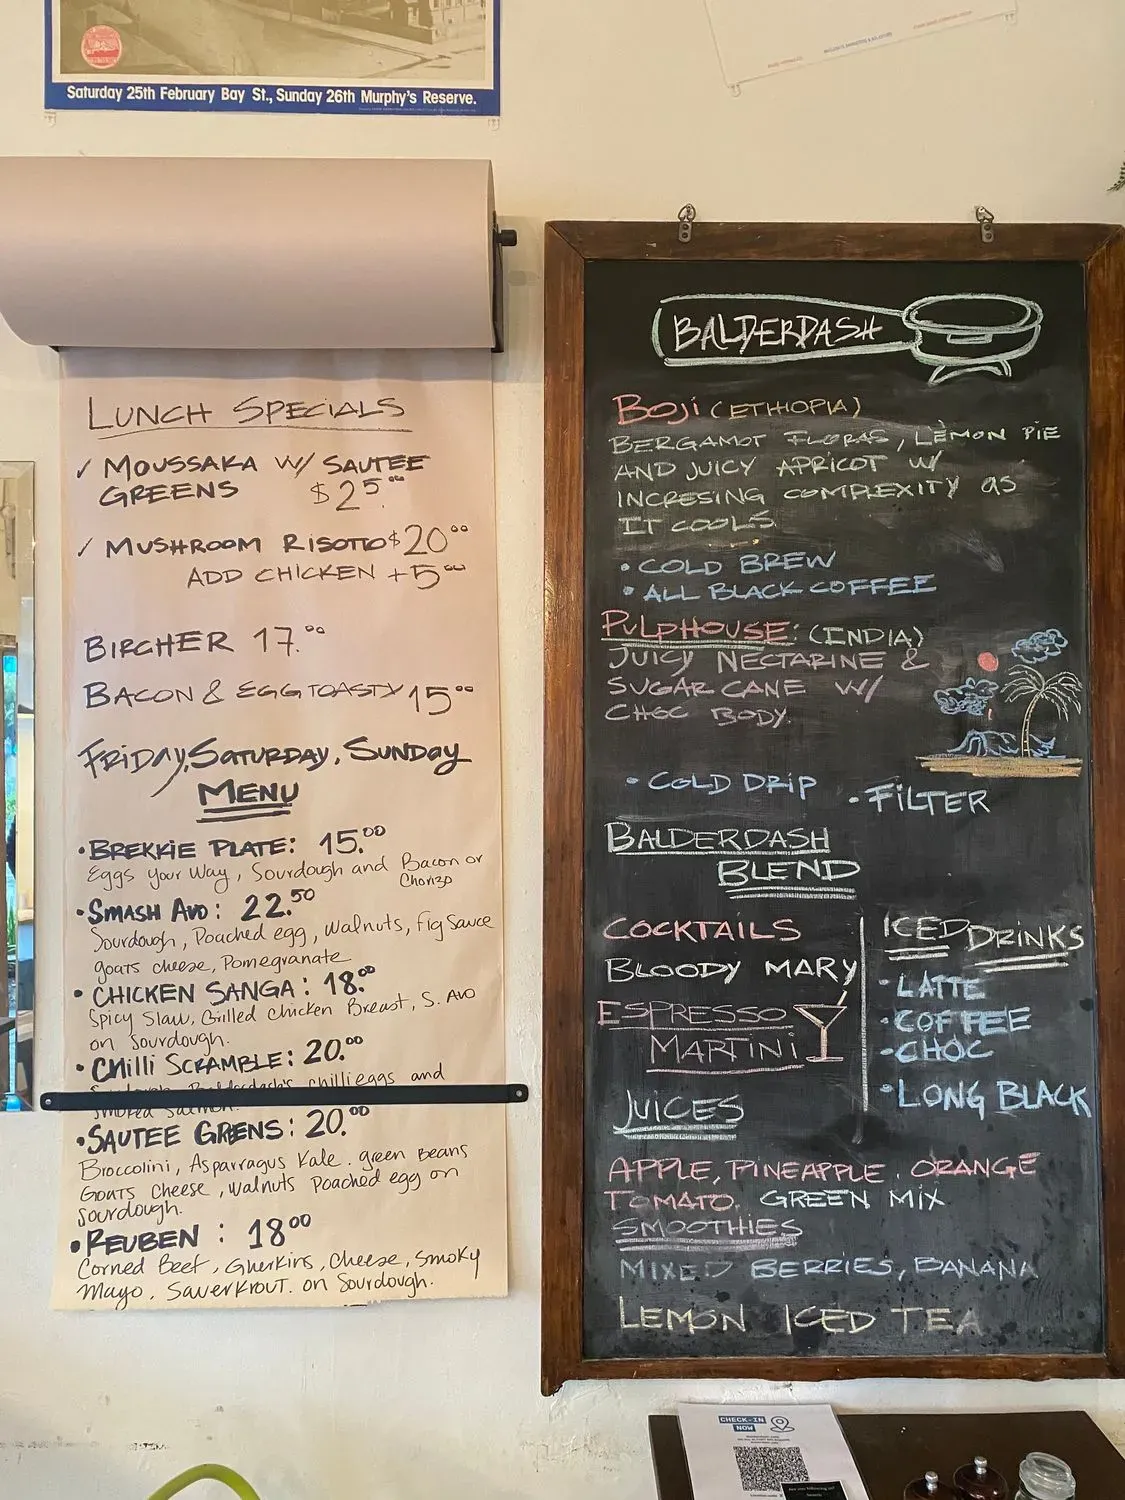 Saturday 25th February Bay St., Sunday 26th Murphy's Reserve.
LUNCH SPECIALS
✓ MOUSSAKA W/ SAUTEE
GREENS $25.00
✓ MUSHROOM RISOTTO $20.00
ADD CHICKEN +5.00
BIRCHER 17.00
BACON & EGG TOASTY 15.00
FRIDAY, SATURDAY, SUNDAY
MENU
• BREKKIE PLATE: 15.00
Eggs your way, Sourdough and Bacon or
Chorizo
• SMASH AVO: 22.50
Sourdough, Poached egg, walnuts, fig sauce
goats cheese, Pomegranate
• CHICKEN SANGA: 18.00
Spicy Slaw, Grilled Chicken Breast, S. AVO
on Sourdough.
• CHILLI SCRAMBLE: 20.00
Sourdough, Balderdash's chilli eggs and
smoked salmon.
• SAUTEE GREENS: 20.00
Broccolini, Asparragus Kale. green Beans
Goats Cheese, walnuts Poached egg on
Sourdough.
• REUBEN : 18.00
Corned Beef, Gherkins, Cheese, Smoky
Mayo, Sauerkrout. on Sourdough.
BALDERDASH
BOJI (ETHIOPIA)
BERGAMOT FLORAS, LEMON PIE
AND JUICY APRICOT W/
INCRESING COMPLEXITY as
IT COOLS.
• COLD BREW
• ALL BLACK COFFEE
PULPHOUSE: (INDIA)
JUICY NECTARINE &
SUGAR CANE W/
CHOC BODY.
• COLD DRIP • FILTER
BALDERDASH
BLEND
COCKTAILS
BLOODY MARY
ESPRESSO
MARTINI
ICED DRINKS
• LATTE
• COFFEE
• CHOC
• LONG BLACK
JUICES
APPLE, PINEAPPLE. ORANGE
TOMATO. GREEN MIX
SMOOTHIES
MIXED BERRIES, BANANA
LEMON ICED TEA
CHECK-IN
NOW